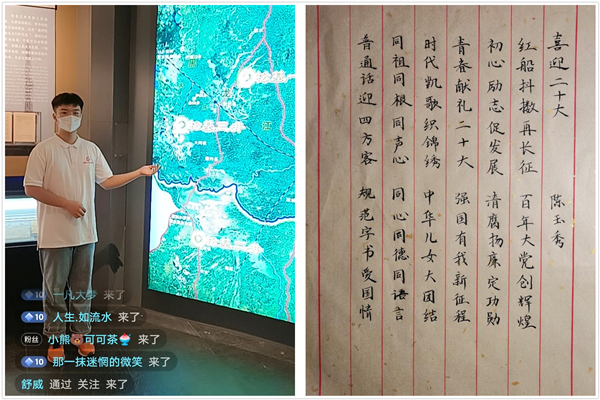 10 来了
10 人生.如流水 来了
粉丝 小熊🐻可可茶🍧 来了
10 那一抹迷惘的微笑 来了
舒威 通过 关注 来了
喜迎二十大 陈玉秀
红船抖擞再长征 百年大党创辉煌
初心励志促发展 清腐扬廉定功勋
青春献礼二十大 强国有我新征程
时代凯歌织锦绣 中华儿女大团结
同祖同根同声心 同心同德同语言
普通话迎四方客 规范字书爱国情